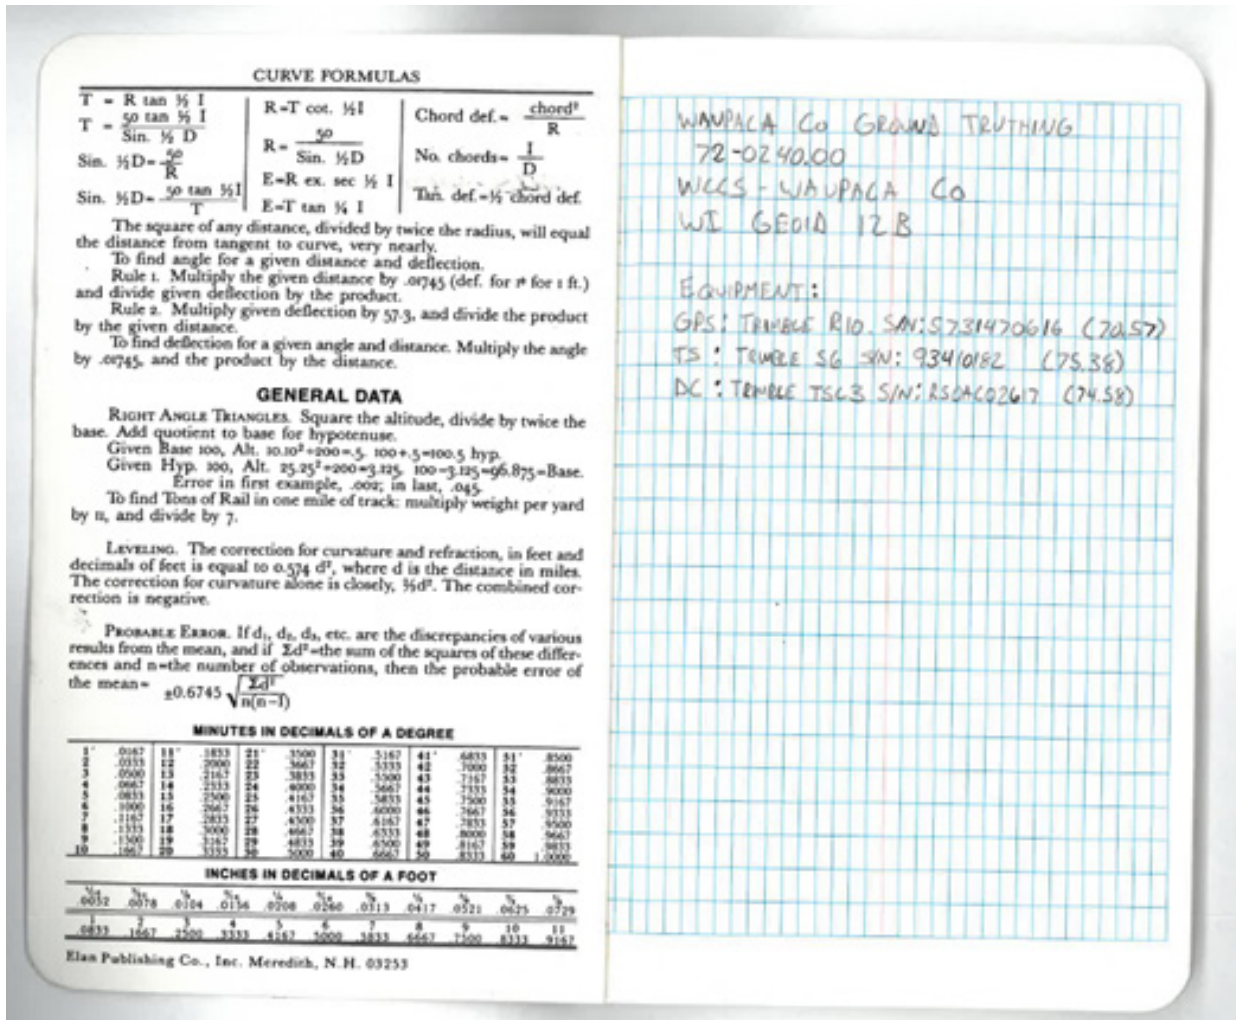 CURVE FORMULAS
T = R tan ½ I
T = 50 tan ½ I / Sin. ½ D
Sin. ½D= 50 / R
Sin. ½D= 50 tan ½I / T
R=T cot. ½I
R= 50 / Sin. ½D
E=R ex. sec ½ I
E=T tan ¼ I
Chord def.= chord² / R
No. chords= I / D
Tan. def.=½ chord def.
The square of any distance, divided by twice the radius, will equal
the distance from tangent to curve, very nearly.
To find angle for a given distance and deflection.
Rule 1. Multiply the given distance by .01745 (def. for 1° for 1 ft.)
and divide given deflection by the product.
Rule 2. Multiply given deflection by 57.3, and divide the product
by the given distance.
To find deflection for a given angle and distance. Multiply the angle
by .01745, and the product by the distance.
GENERAL DATA
RIGHT ANGLE TRIANGLES. Square the altitude, divide by twice the
base. Add quotient to base for hypotenuse.
Given Base 100, Alt. 10.10²÷200=.5. 100+.5=100.5 hyp.
Given Hyp. 100, Alt. 25.25²÷200=3.125. 100-3.125=96.875=Base.
Error in first example, .002; in last, .045.
To find Tons of Rail in one mile of track: multiply weight per yard
by 11, and divide by 7.
LEVELING. The correction for curvature and refraction, in feet and
decimals of feet is equal to 0.574 d², where d is the distance in miles.
The correction for curvature alone is closely, ⅔d². The combined cor-
rection is negative.
PROBABLE ERROR. If d₁, d₂, d₃, etc. are the discrepancies of various
results from the mean, and if Σd²=the sum of the squares of these differ-
ences and n=the number of observations, then the probable error of
the mean= ±0.6745 √Σd² / n(n-1)
MINUTES IN DECIMALS OF A DEGREE
1' .0167 11' .1833 21' .3500 31' .5167 41' .6833 51' .8500
2 .0333 12 .2000 22 .3667 32 .5333 42 .7000 52 .8667
3 .0500 13 .2167 23 .3833 33 .5500 43 .7167 53 .8833
4 .0667 14 .2333 24 .4000 34 .5667 44 .7333 54 .9000
5 .0833 15 .2500 25 .4167 35 .5833 45 .7500 55 .9167
6 .1000 16 .2667 26 .4333 36 .6000 46 .7667 56 .9333
7 .1167 17 .2833 27 .4500 37 .6167 47 .7833 57 .9500
8 .1333 18 .3000 28 .4667 38 .6333 48 .8000 58 .9667
9 .1500 19 .3167 29 .4833 39 .6500 49 .8167 59 .9833
10 .1667 20 .3333 30 .5000 40 .6667 50 .8333 60 1.0000
INCHES IN DECIMALS OF A FOOT
.0052 .0078 .0104 .0156 .0208 .0260 .0313 .0417 .0521 .0625 .0729
1 2 3 4 5 6 7 8 9 10 11
.0833 .1667 .2500 .3333 .4167 .5000 .5833 .6667 .7500 .8333 .9167
Elan Publishing Co., Inc. Meredith, N.H. 03253
WAUPACA CO GROUND TRUTHING
72-0240.00
WCCS - WAUPACA CO
WI GEOID 12B
EQUIPMENT:
GPS: TRIMBLE R10 S/N: 5731470616 (70.57)
TS: TRIMBLE S6 S/N: 93410182 (75.38)
DC: TRIMBLE TSC3 S/N: RSDAC02617 (74.58)